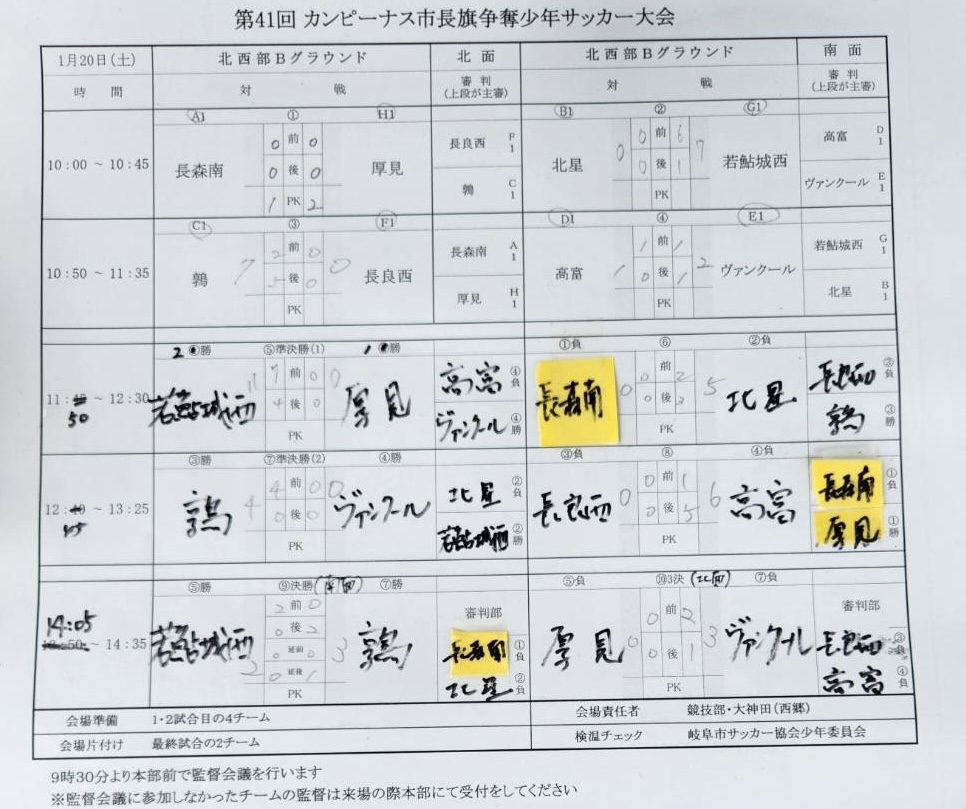 第41回 カンピーナス市長旗争奪少年サッカー大会
1月20日(土) 北西部Bグラウンド 北面 北西部Bグラウンド 南面
時間 対 戦 審判 (上段が主審) 対 戦 審判 (上段が主審)
A1 ① H1 B1 ② G1
10:00 ~ 10:45
長森南 0 前 0 厚見 長良西 F1
0 後 0 鶉 C1
1 PK 2
北星 0 0 前 6 7 若鮎城西 高富 D1
0 後 1 ヴァンクール E1
PK
C1 ③ F1 D1 ④ E1
10:50 ~ 11:35
鶉 7 2 前 0 0 長良西 長森南 A1
5 後 0 厚見 H1
PK
高富 1 1 前 1 2 ヴァンクール 若鮎城西 G1
0 後 1 北星 B1
PK
2 勝 ⑤準決勝(1) 1 勝 ①負 ⑥ ②負
11: 50 ~ 12:30
若鮎城西 11 7 前 0 0 厚見 高富 ④負
4 後 0 ヴァンクール ④勝
PK
長森南 0 0 前 2 5 北星 長良西 ③負
0 後 鶉 ③勝
PK
③勝 ⑦準決勝(2) ④勝 ③負 ⑧ ④負
12: ~ 13:25
鶉 4 4 前 0 0 ヴァンクール 北星 ②負
0 後 0 若鮎城西 ②勝
PK
長良西 0 0 前 1 6 高富 長森南 ①負
0 後 5 厚見 ①勝
PK
⑤勝 ⑨決勝(南面) ⑦勝 ⑤負 ⑩3決(北面) ⑦負
14:05 ~ 14:35
若鮎城西 2 2 前 0 3 鶉 審判部
0 後 2 長森南 ①負
0 延前 0 北星 ②負
0 延後 1
PK
厚見 0 0 前 2 3 ヴァンクール 審判部
0 後 1 長良西 ③負
PK 高富 ④負
会場準備 1・2試合目の4チーム 会場責任者 競技部・大神田(西郷)
会場片付け 最終試合の2チーム 検温チェック 岐阜市サッカー協会少年委員会
9時30分より本部前で監督会議を行います
※監督会議に参加しなかったチームの監督は来場の際本部にて受付をしてください